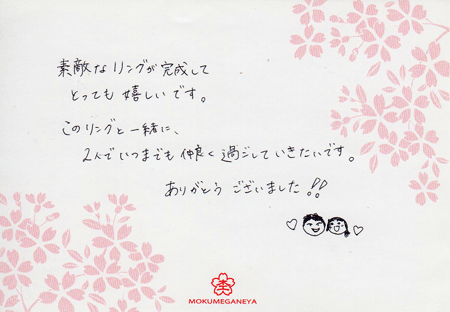 素敵なリングが完成して
とっても嬉しいです。
このリングと一緒に、
2人でいつまでも仲良く過ごしていきたいです。
ありがとうございました!!
MOKUMEGANEYA